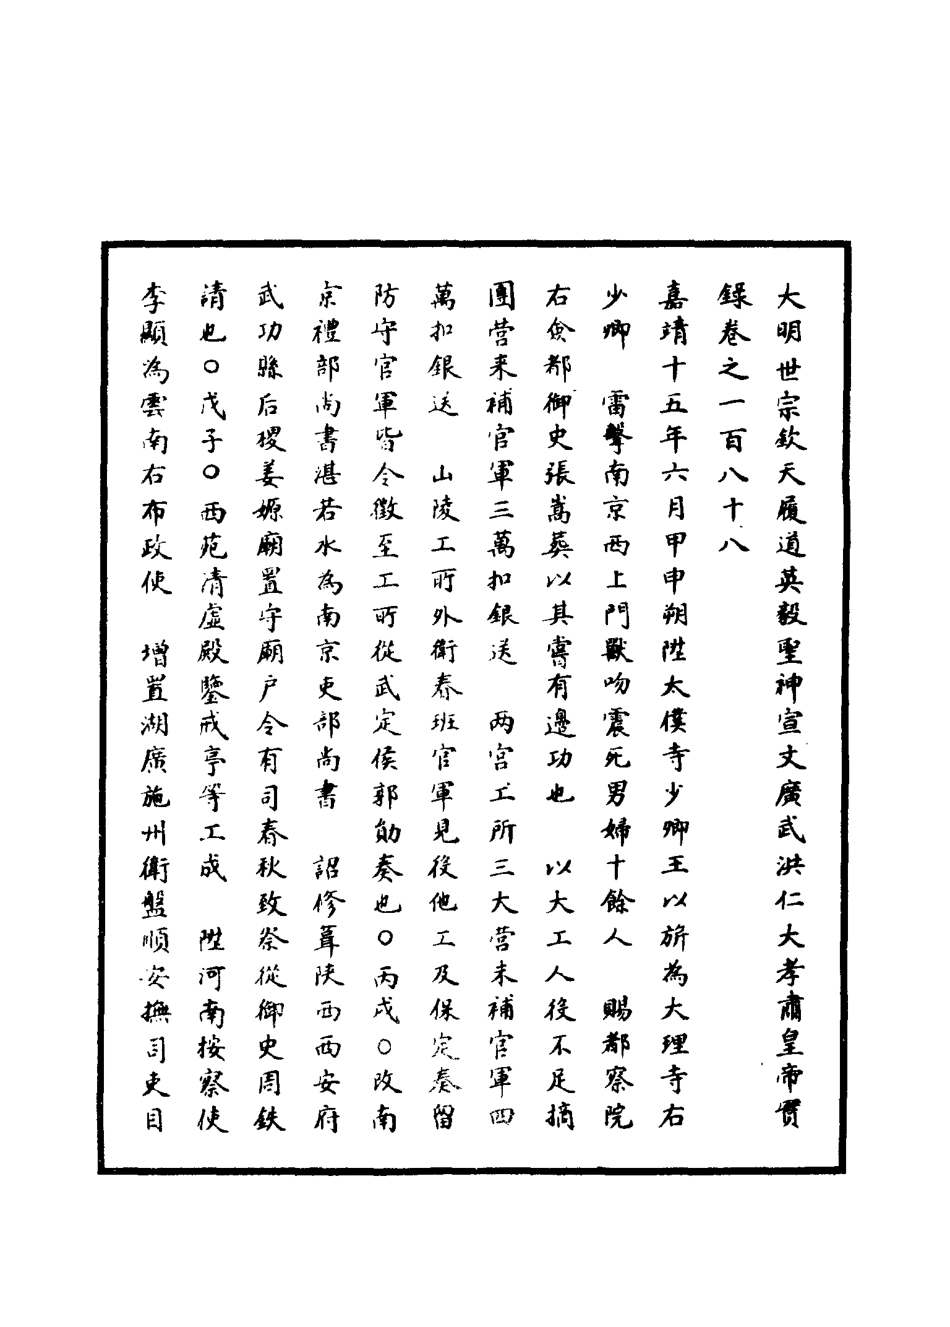 大明世宗欽天履道英毅聖神宣文廣武洪仁大孝肅皇帝實
錄卷之一百八十八
嘉靖十五年六月甲申朔陞太僕寺少卿王以旂為大理寺右
少卿　雷擊南京西上門獸吻震死男婦十餘人　賜都察院
右僉都御史張嵩葬以其嘗有邊功也　以大工人役不足摘
團營来補官軍三萬扣銀送　两宫工所三大营未補官軍四
萬扣銀送　山陵工所外衛春班官軍見役他工及保定春留
防守官軍皆令徵至工所從武定侯郭勛奏也○丙戌○改南
京禮部尚書湛若水為南京吏部尚書　詔修葺陕西西安府
武功縣后稷姜嫄廟置守廟户令有司春秋致祭從御史周鉄
請也○戊子○西苑清虛殿鑒戒亭等工成　陞河南按察使
李顯為雲南右布政使　增置湖廣施州衛盤順安撫司吏目